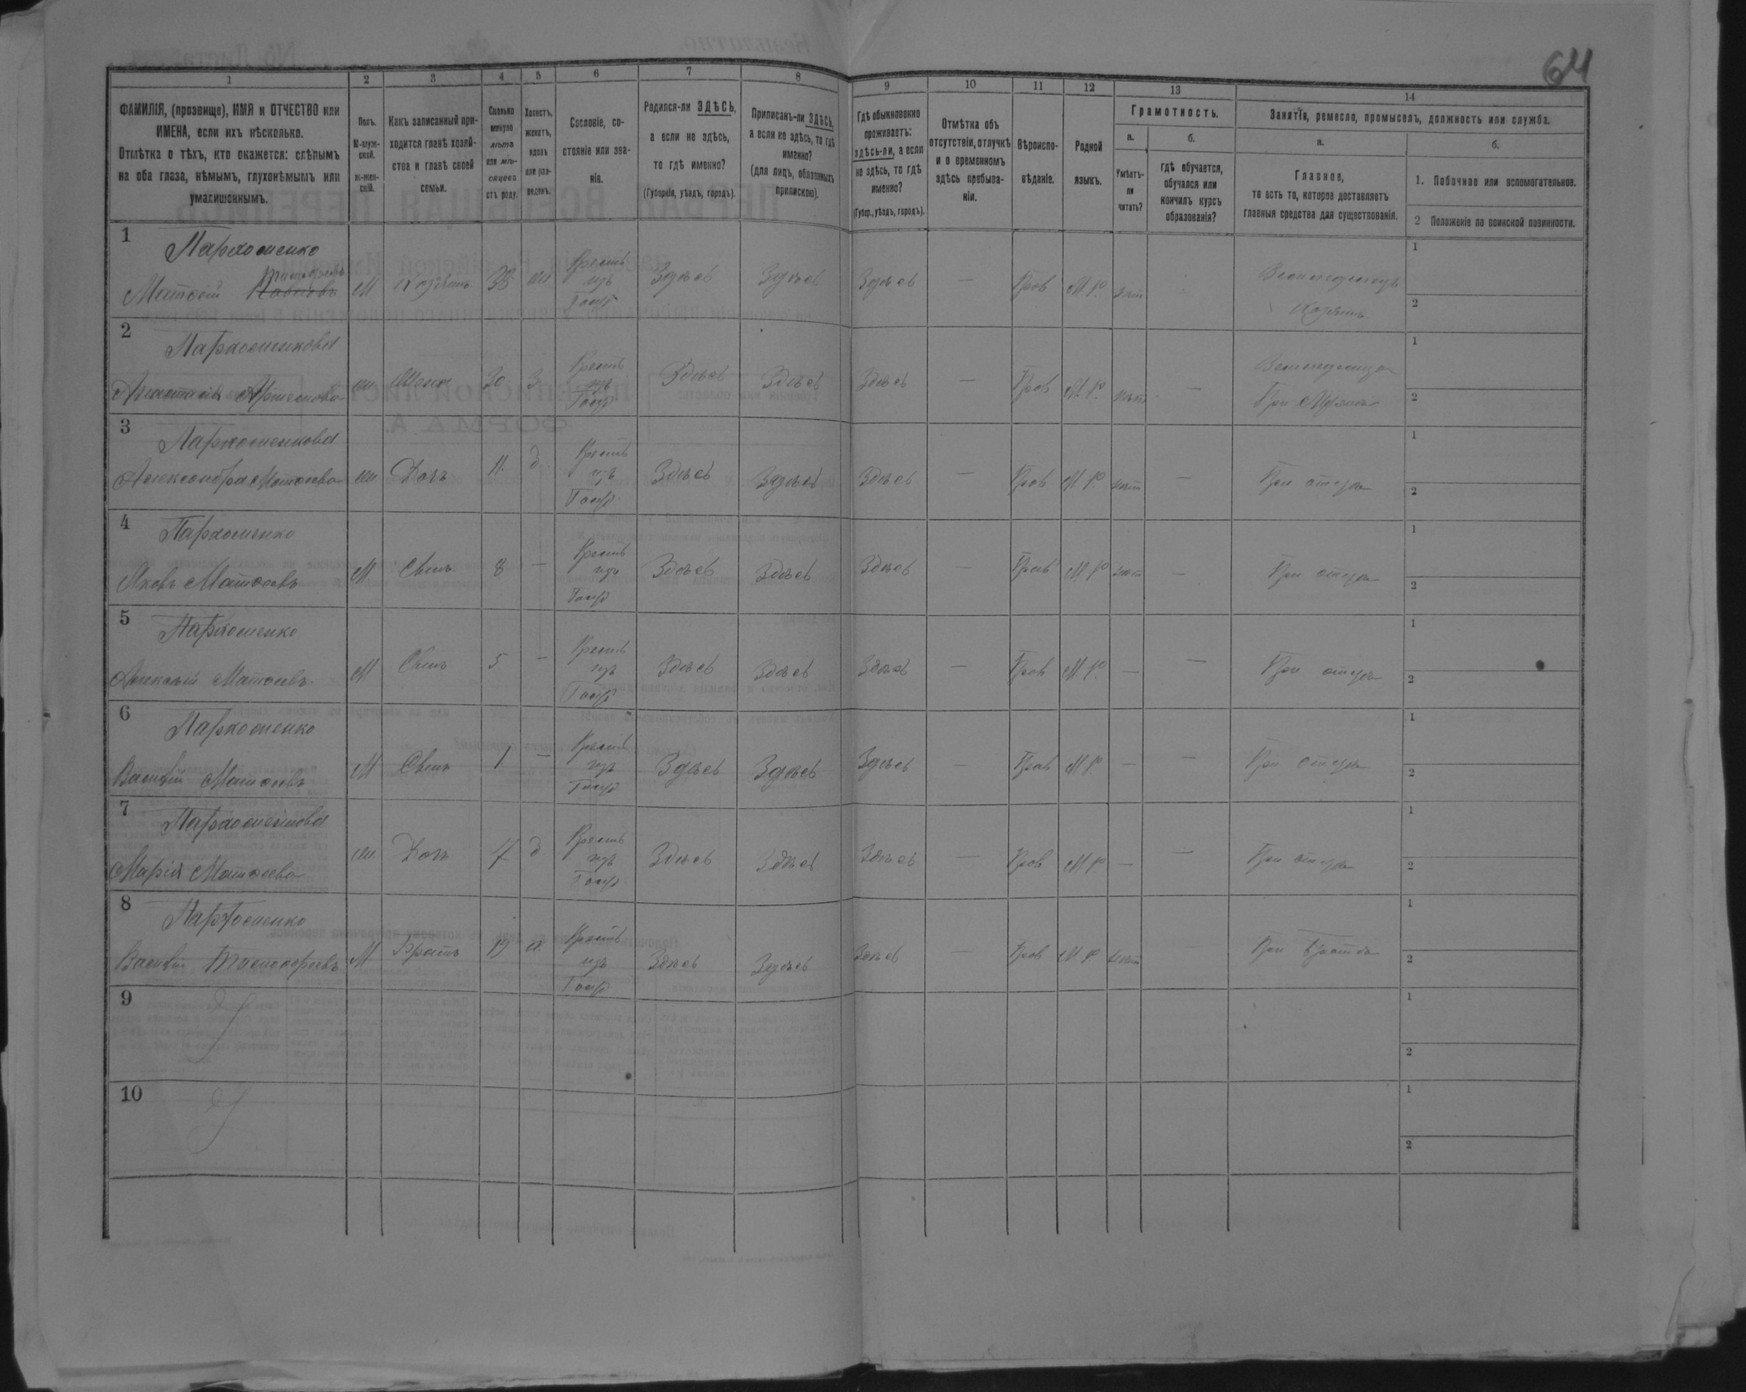 64
1 2 3 4 5 6 7 8 9 10 11 12 13 14
ФАМИЛІЯ, (прозвище), ИМЯ и ОТЧЕСТВО или ИМЕНА, если ихъ нѣсколько.
Отмѣтка о тѣхъ, кто окажется: слѣпымъ на оба глаза, нѣмымъ, глухонѣмымъ или умалишеннымъ.
Полъ. М-мужской. ж-женскій.
Какъ записанный приходится главѣ хозяйства и главѣ своей семьи.
Сколько минуло лѣтъ или мѣсяцевъ отъ роду.
Холостъ, женатъ, вдовъ или разведенъ.
Сословіе, состояніе или званіе.
Родился-ли ЗДѢСЬ, а если не здѣсь, то гдѣ именно?
(Губернія, уѣздъ, городъ).
Приписанъ-ли ЗДѢСЬ, а если не здѣсь, то гдѣ именно?
(для лицъ, обязанныхъ припискою).
Гдѣ обыкновенно проживаетъ: здѣсь-ли, а если не здѣсь, то гдѣ именно?
(Губер., уѣздъ, городъ).
Отмѣтка объ отсутствіи, отлучкѣ и о временномъ здѣсь пребываніи.
Вѣроисповѣданіе.
Родной языкъ.
Грамотность.
а.
Умѣетъ-ли читать?
б.
гдѣ обучается, обучался или кончилъ курсъ образованія?
Занятія, ремесло, промыселъ, должность или служба.
а.
Главное,
то есть то, которое доставляетъ главныя средства для существованія.
б.
1. Побочное или вспомогательное.
2 Положеніе по воинской повинности.
1 Пархоменко
Матвѣй Тимофеевъ М Хозяинъ 38 ж Крестъ изъ Госуд Здѣсь Здѣсь Здѣсь — Прав М Р нѣтъ — Земледѣлецъ Хозяинъ 1 2
2 Пархоменкова
Анастасія Артемова ж Жена 30 з Крестъ изъ Госуд Здѣсь Здѣсь Здѣсь — Прав М Р. нѣтъ — При Мужѣ 1 2
3 Пархоменкова
Александра Матвѣева ж Дочь 11 д Крестъ изъ Госуд Здѣсь Здѣсь Здѣсь — Прав М Р. нѣтъ — При отцѣ 1 2
4 Пархоменко
Яковъ Матвѣевъ М Сынъ 8 — Крестъ изъ Госуд Здѣсь Здѣсь Здѣсь — Прав М Р нѣтъ — При отцѣ 1 2
5 Пархоменко
Алексѣй Матвѣевъ М Сынъ 5 — Крестъ изъ Госуд Здѣсь Здѣсь Здѣсь — Прав М Р. — — При отцѣ 1 2
6 Пархоменко
Василій Матвѣевъ М Сынъ 1 — Крестъ изъ Госуд Здѣсь Здѣсь Здѣсь — Прав М Р — — При отцѣ 1 2
7 Пархоменкова
Марія Матвѣева ж Дочь д Крестъ изъ Госуд Здѣсь Здѣсь Здѣсь — Прав М Р — — При отцѣ 1 2
8 Пархоменко
Василій Тимофеевъ М Братъ 19 х. Крестъ изъ Госуд Здѣсь Здѣсь Здѣсь — Прав М Р нѣтъ — При братѣ 1 2
9 1 2
10 1 2